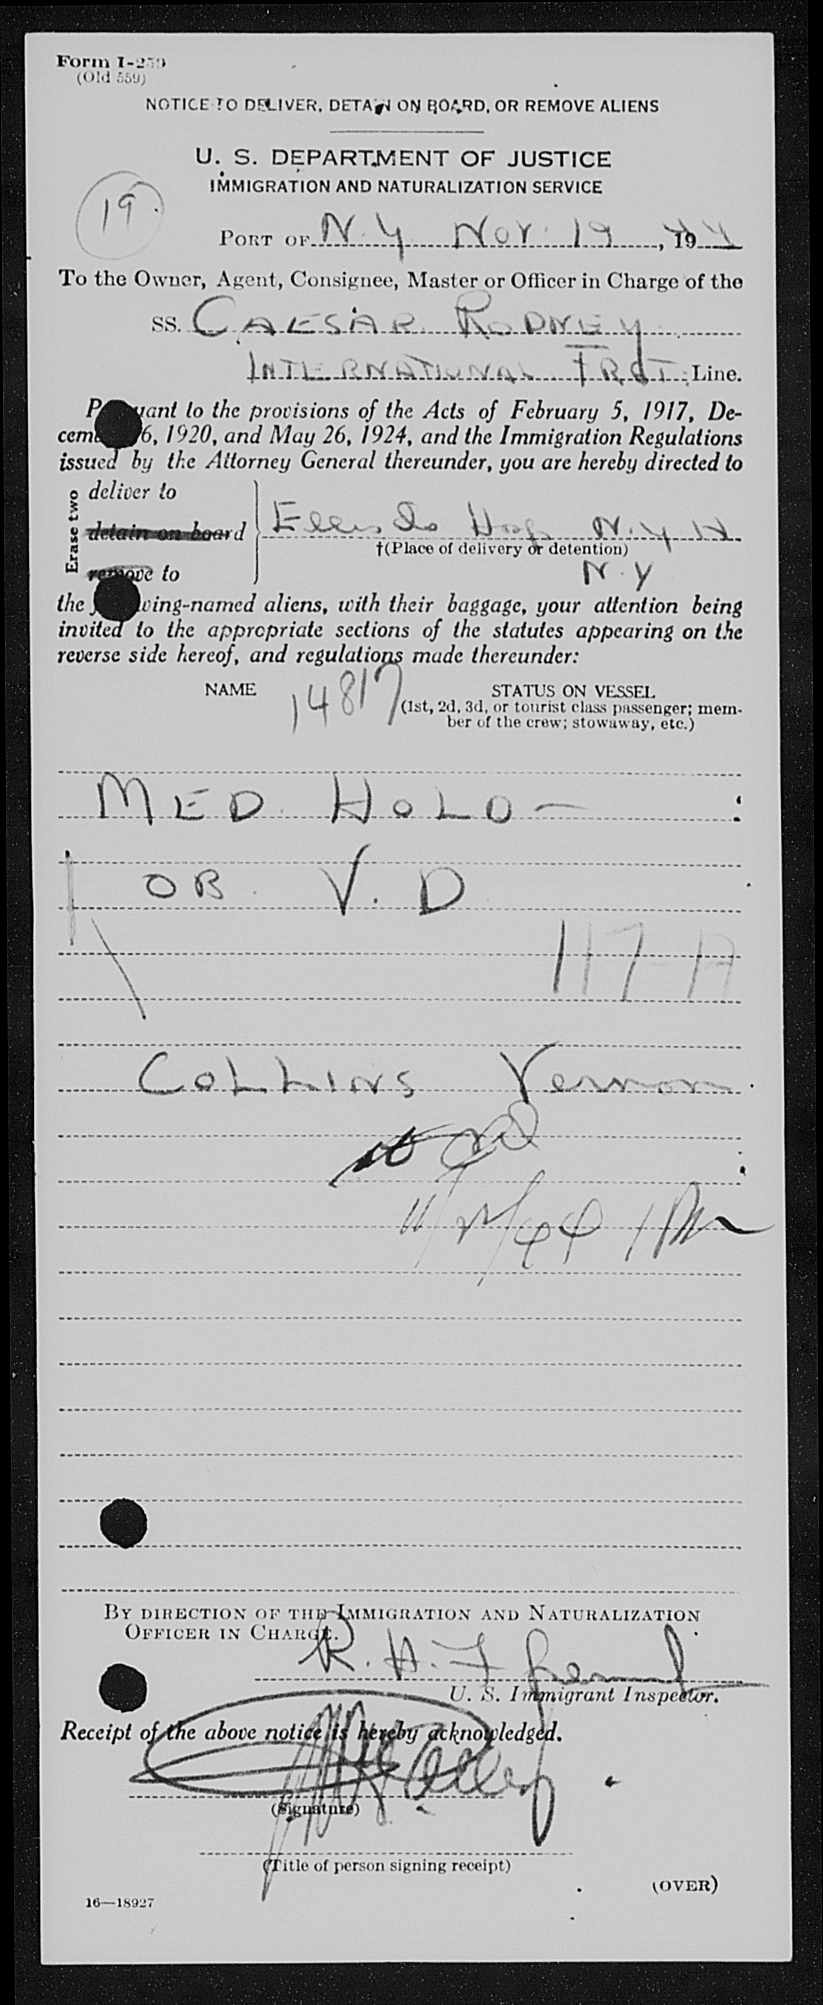 Form I-259
(Old 559)
NOTICE TO DELIVER, DETAIN ON BOARD, OR REMOVE ALIENS
U. S. DEPARTMENT OF JUSTICE
IMMIGRATION AND NATURALIZATION SERVICE
19
PORT OF N.Y. Nov. 19, 1944
To the Owner, Agent, Consignee, Master or Officer in Charge of the
SS. CAESAR RODNEY
INTERNATIONAL FRGT. Line.
Pursuant to the provisions of the Acts of February 5, 1917, De-
cember 26, 1920, and May 26, 1924, and the Immigration Regulations
issued by the Attorney General thereunder, you are hereby directed to
Erase two
deliver to
detain on board
Ellis Is Hosp. N.Y.H.
†(Place of delivery or detention)
remove to
N.Y
the following-named aliens, with their baggage, your attention being
invited to the appropriate sections of the statutes appearing on the
reverse side hereof, and regulations made thereunder:
NAME
14817
STATUS ON VESSEL
(1st, 2d, 3d, or tourist class passenger; mem-
ber of the crew; stowaway, etc.)
MED HOLD -
OB. V.D
117-A
COLLINS Vernon
1 PM
BY DIRECTION OF THE IMMIGRATION AND NATURALIZATION
OFFICER IN CHARGE.
R. H. T
U. S. Immigrant Inspector.
Receipt of the above notice is hereby acknowledged.
(Signature)
(Title of person signing receipt)
(OVER)
16—18927